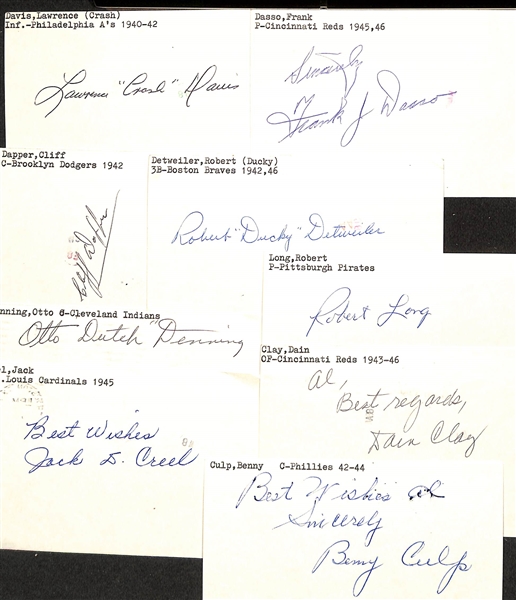 Davis,Lawrence (Crash)
Inf.-Philadelphia A's 1940-42
Lawrence "Crash" Davis
Dasso,Frank
P-Cincinnati Reds 1945,46
Sincerely
Frank J Dasso
Dapper,Cliff
C-Brooklyn Dodgers 1942
Cliff Dapper
Detweiler,Robert (Ducky)
3B-Boston Braves 1942,46
Robert "Ducky" Detweiler
Long,Robert
P-Pittsburgh Pirates
Robert Long
nning,Otto 6-Cleveland Indians
Otto Dutch" Denning
Clay,Dain
OF-Cincinnati Reds 1943-46
Al,
Best regards,
Dain Clay
l,Jack
.Louis Cardinals 1945
Best Wishes
Jack D. Creel
Culp,Benny C-Phillies 42-44
Best Wishes Al
Sincerely
Benny Culp